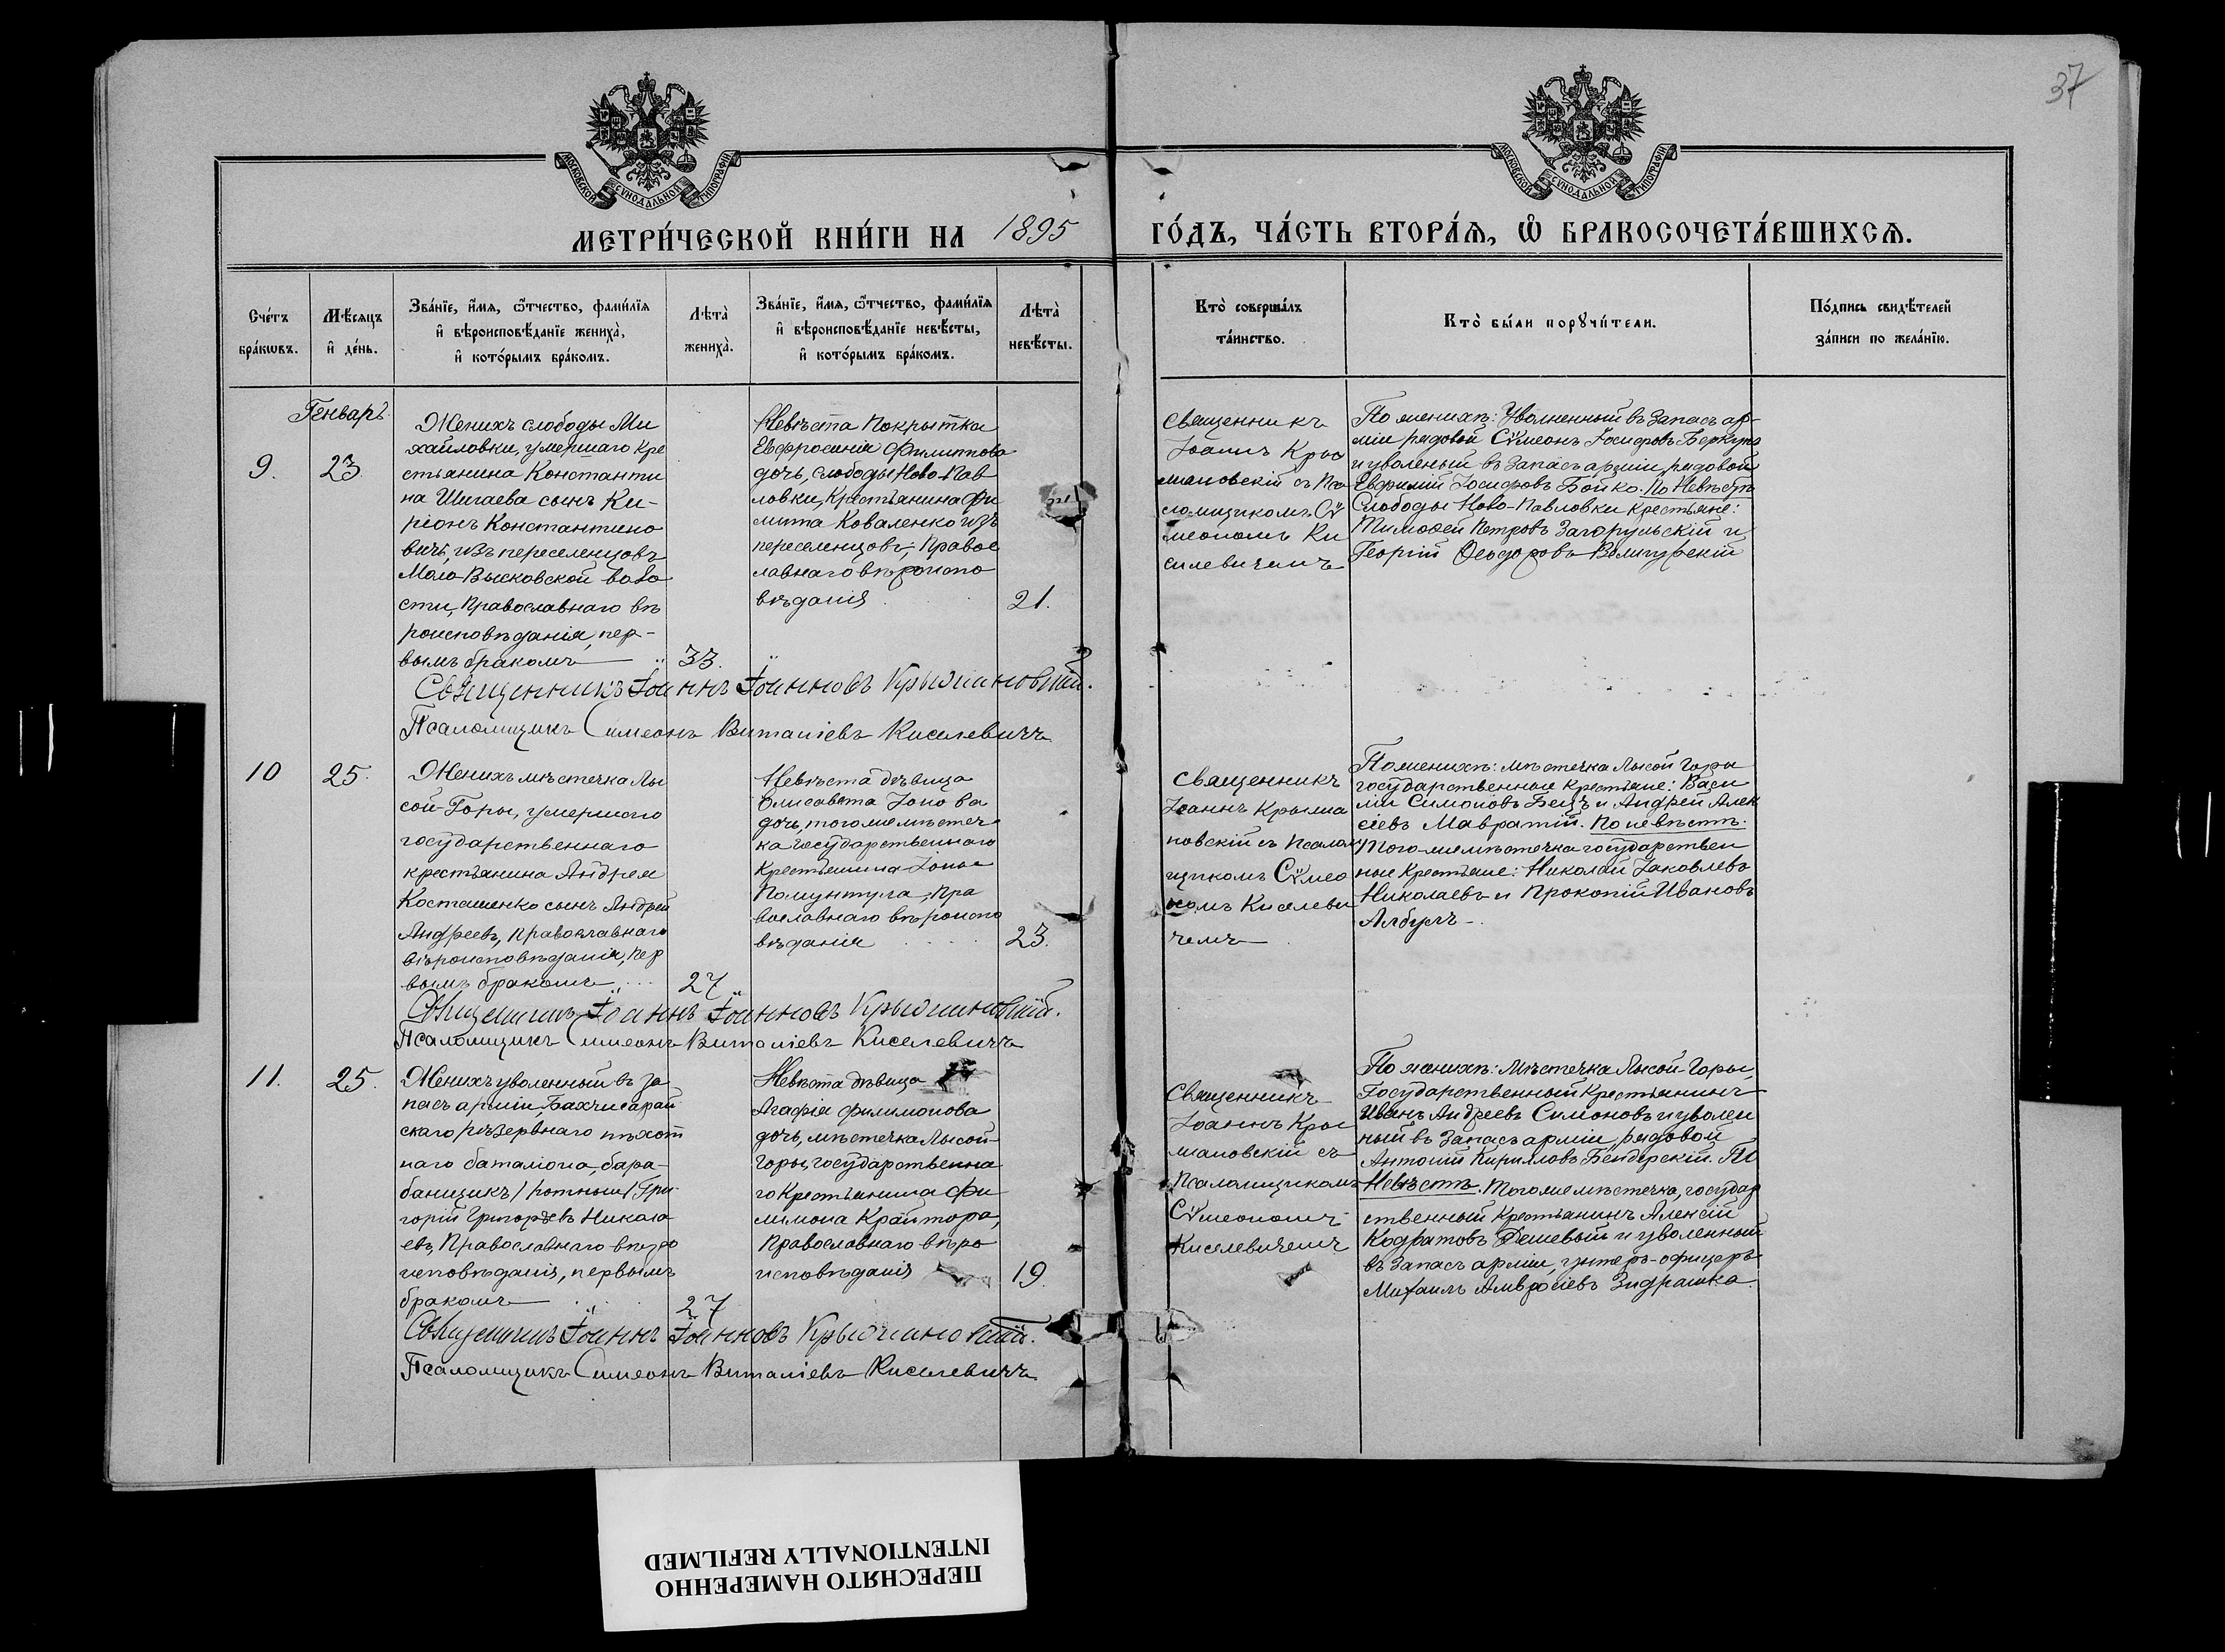 37
МОСКОВСКОЙ СѴНОДАЛЬНОЙ ТИПОГРАФІИ
МОСКОВСКОЙ СѴНОДАЛЬНОЙ ТИПОГРАФІИ
МЕТРИ́ЧЕСКОЙ КНИ́ГИ НА 1895 ГО́ДЪ, ЧА́СТЬ ВТОРА́Ѧ, Ѽ БРАКОСОЧЕТА́ВШИХСѦ.
Сче́тъ
бра́кѡвъ.
Мѣ́сѧцъ
и҆ де́нь.
Зва́нїе, и҆́мѧ, ѻ҆́тчество, фами́лїѧ
и҆ вѣроисповѣ́данїе жениха̀,
и҆ кото́рымъ бра́комъ.
Лѣта̀
жениха̀.
Зва́нїе, и҆́мѧ, ѻ҆́тчество, фами́лїѧ
и҆ вѣроисповѣ́данїе невѣ́сты,
и҆ кото́рымъ бра́комъ.
Лѣта̀
невѣ́сты.
Кто̀ соверша́лъ
та́инство.
Кто̀ бы́ли порꙋчи́тели.
По́дпись свидѣ́телей
за́писи по жела́нїю.
Генварь
9.
23
Женихъ слободы Ми
хайловки, умершаго кре
стьянина Константи
на Шигаева сынъ Ки-
ріонъ Константино
вичъ, изъ переселенцовъ
Мало-Высковской воло
сти, Православнаго вѣ
роисповѣданія, пер-
вымъ бракомъ
33.
Невѣста Покрытка
Евфросинія Филиппова
дочь, слободы Ново-Пав
ловки, Крестьянина Фи
липпа Коваленко изъ
переселенцовъ, Правос
лавнаго вѣроиспо
вѣданія
21.
Священникъ
Іоаннъ Кры
мановскій съ Пса
ломщикомъ Сѵ
меономъ Ки
селевичемъ
По женихѣ: Уволенный въ Запасъ ар-
міи рядовой Сѵмеонъ Іосифовъ Беркута
и уволеный въ Запасъ арміи, рядовой
Евфимій Іосифовъ Бойко. По Невѣстѣ
Слободы Ново-Павловки крестьяне:
Тимофей Петровъ Загорульскій и
Георгій Ѳеодоровъ Величурскій
Священникъ Іоаннъ Іоанновъ Крымановскій.
Псаломщикъ Симеонъ Виталіевъ Киселевичъ
10
25.
Женихъ мѣстечка Лы
сой-Горы, умершаго
государственнаго
крестьянина Андрея
Косташенко сынъ Андрей
Андреевъ, Православнаго
вѣроисповѣданія, пер
вымъ бракомъ
27
Невѣста дѣвица
Елисавета Іоно ва
дочь, тогоже мѣстеч
ка государственнаго
Крестьянина Іоны
Пра
вославнаго вѣроиспо
вѣданія
23.
Священникъ
Іоаннъ Крыма
новскій съ Псалом
щикомъ Сѵмео
номъ Киселеви
чемъ
По женихѣ: мѣстечка Лысой Горы
государственные Крестьяне: Васи
лій Симоновъ Бецъ и Андрей Алек
сіевъ Мавратій. По невѣстѣ.
Того-же мѣстечка государствен
ные Крестьяне: Николай Іаковлевъ
Николаевъ и Прокопій Ивановъ
Албулъ
Священникъ Іоаннъ Іоанновъ Крымановскій.
Псаломщикъ Симеонъ Виталіевъ Киселевичъ
11.
25.
Женихъ уволенный въ за
пасъ арміи, Бахчисарай
скаго резервнаго пѣхот
наго баталіона, бара-
банщикъ /ротный/ Гри
горій Григорьевъ Никола
евъ, Православнаго вѣро
исповѣданія, первымъ
бракомъ
27
Невѣста дѣвица
Агафія Филимонова
дочь, мѣстечка Лысой-
Горы, государственна
го Крестьянина Фи
лимона Крайтора,
Православнаго вѣро
исповѣданія
19
Священникъ
Іоаннъ Кры
мановскій съ
Псаломщикомъ
Сѵмеономъ
Киселевичемъ
По женихѣ: Мѣстечка Лысой-Горы,
Государственный Крестьянинъ
Иванъ Андреевъ Симоновъ и уволен
ный въ Запасъ арміи, рядовой
Антоній Кирилловъ Бендерскій. По
Невѣстѣ. Тогоже мѣстечка, государ
ственный Крестьянинъ Алексій
Кодратовъ Дешевый и уволенный
въ Запасъ арміи, унтеръ-офицеръ
Михаилъ Амвросіевъ Зидрашка.
Священникъ Іоаннъ Іоанновъ Крымановскій.
Псаломщикъ Симеонъ Виталіевъ Киселевичъ
ПЕРЕСНЯТО НАМЕРЕННО
INTENTIONALLY REFILMED